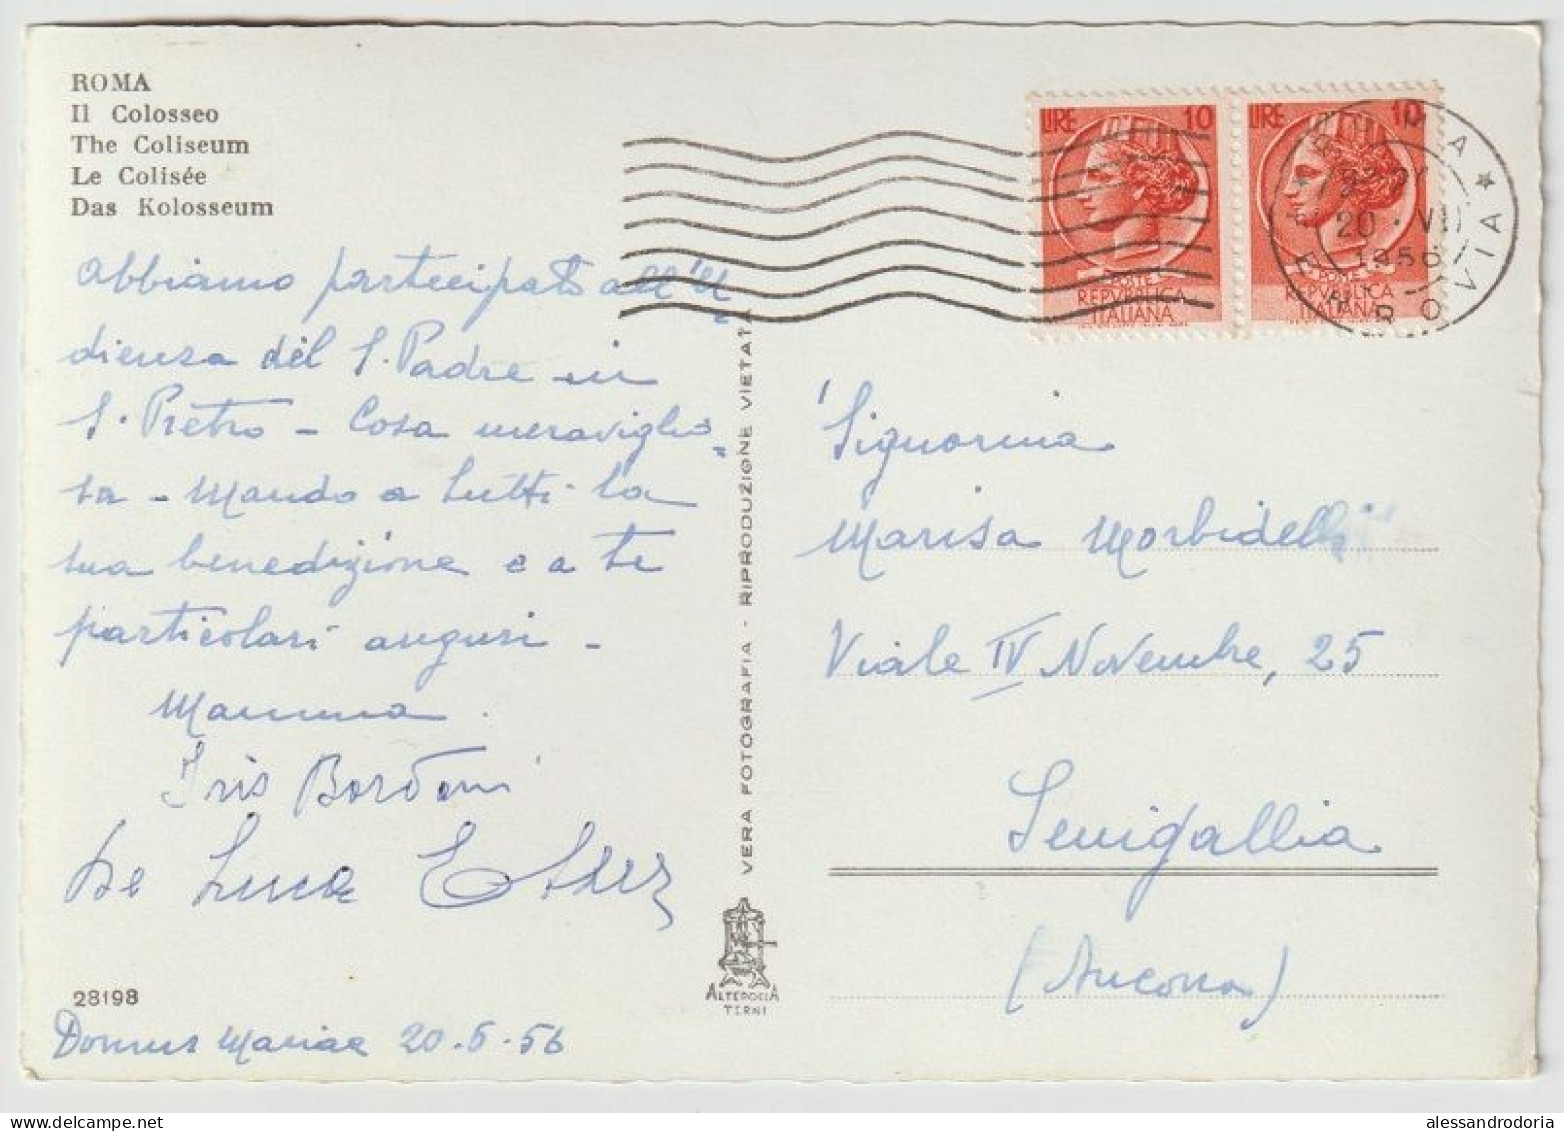 ROMA
Il Colosseo
The Coliseum
Le Colisée
Das Kolosseum
Abbiamo partecipato all'U
dienza del S. Padre in
S. Pietro - Cosa meraviglio
sa - Mando a tutti la
sua benedizione e a te
particolari auguri -
Mamma.
Iris Bordoni
De Luca Ester
28198
Domus Mariae 20.5.56
VERA FOTOGRAFIA - RIPRODUZIONE VIETATA
ALTEROCCA
TERNI
LIRE 10
POSTE
REPVBBLICA
ITALIANA
LIRE 10
POSTE
REPVBBLICA
ITALIANA
ROMA
20 . VII
1956
FERROVIA
Signorina
Marisa Morbidelli
Viale IV Novembre, 25
Senigallia
(Ancona)
alessandrodoria